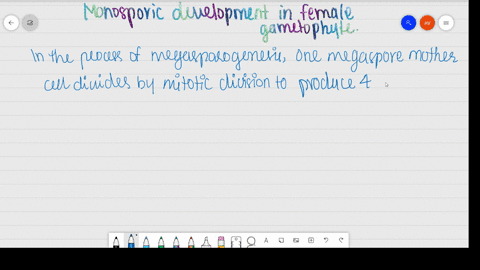 Monosporic development in female
gametophyte.
In the process of megasporogenesis, one megaspore mother
cell divides by mitotic division to produce 4